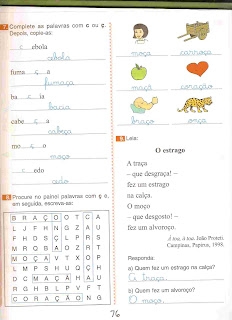 7. Complete as palavras com c ou ç. Depois, copie-as:
c ebola
cebola
fuma ç a
fumaça
ba c ia
bacia
cabe ç a
cabeça
mo ç o
moço
c edo
cedo
8. Procure no painel palavras com ç e, em seguida, escreva-as:
B R A Ç O O T C A
moça carroça
maçã coração
braço onça
9. Leia:
O estrago
A traça
– que desgraça! –
fez um estrago
na calça.
O moço
– que desgosto! –
fez um alvoroço.
À toa, à toa. João Proteti.
Campinas, Papirus, 1998.
Responda:
a) Quem fez um estrago na calça?
A traça.
b) Quem fez um alvoroço?
O moço.
76